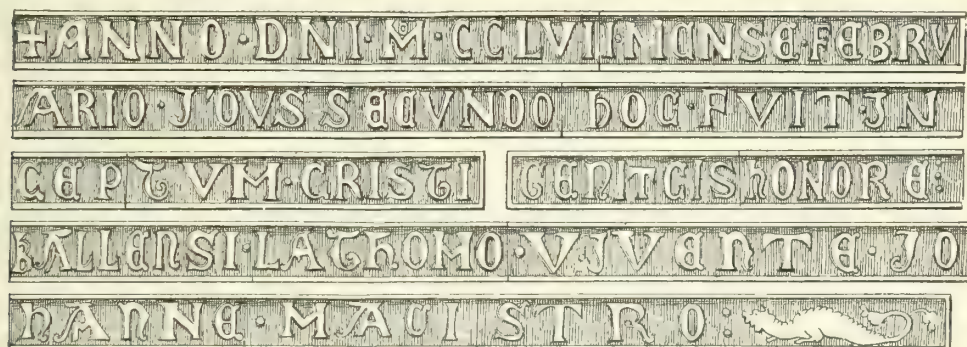 +ANNO·DNI·M·CCLVII·MENSE·FEBRV
ARIO·JDVS·SECVNDO HOC·FVIT·JN
CEPTVM·CRISTI GENITCIS HONORE:
KALLENSI·LATHOMO·VJVENTE·JO
HANNE·MAGISTRO: